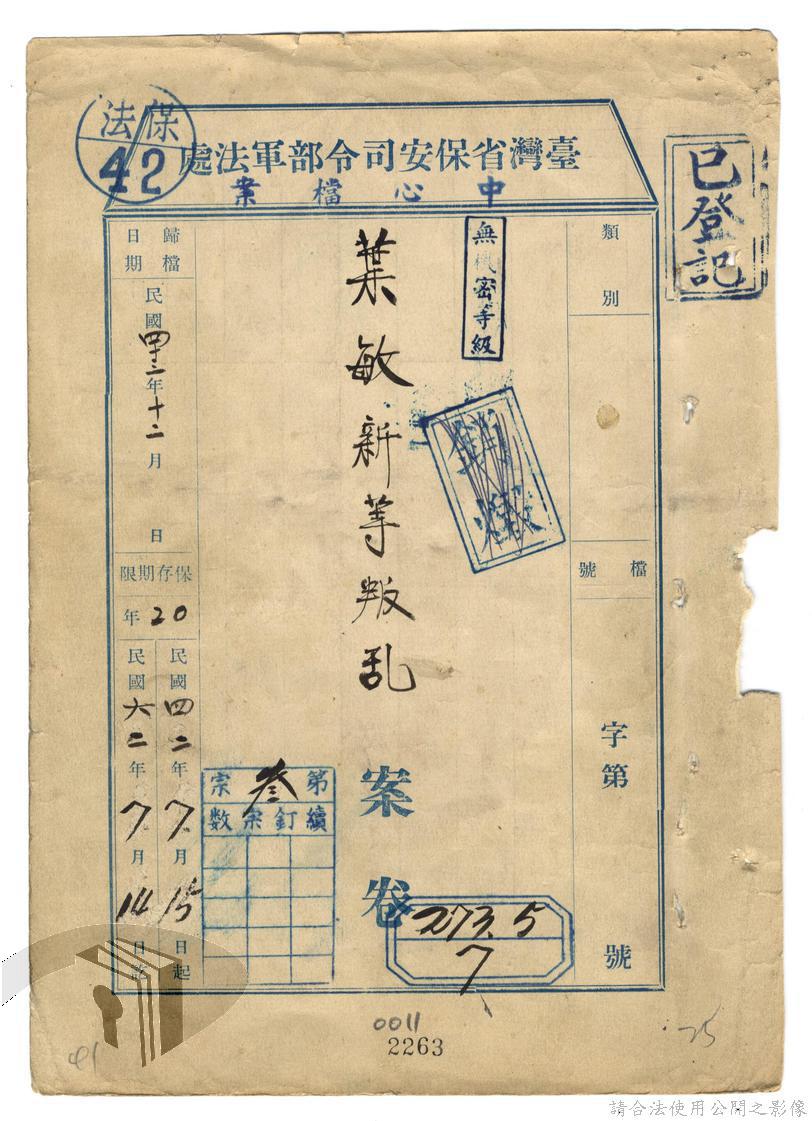 保法
42
臺灣省保安司令部軍法處
中心檔案
已登記
類別
檔號
字第
號
無機密等級
銷燬
葉敏新等叛乱
案卷
273.5
7
第叁宗
續訂宗数
歸檔日期
民國四十三年十二月 日
保存期限
20年
民國四二年7月15日起
民國六二年7月14日訖
0011
2263
41
25
請合法使用公開之影像